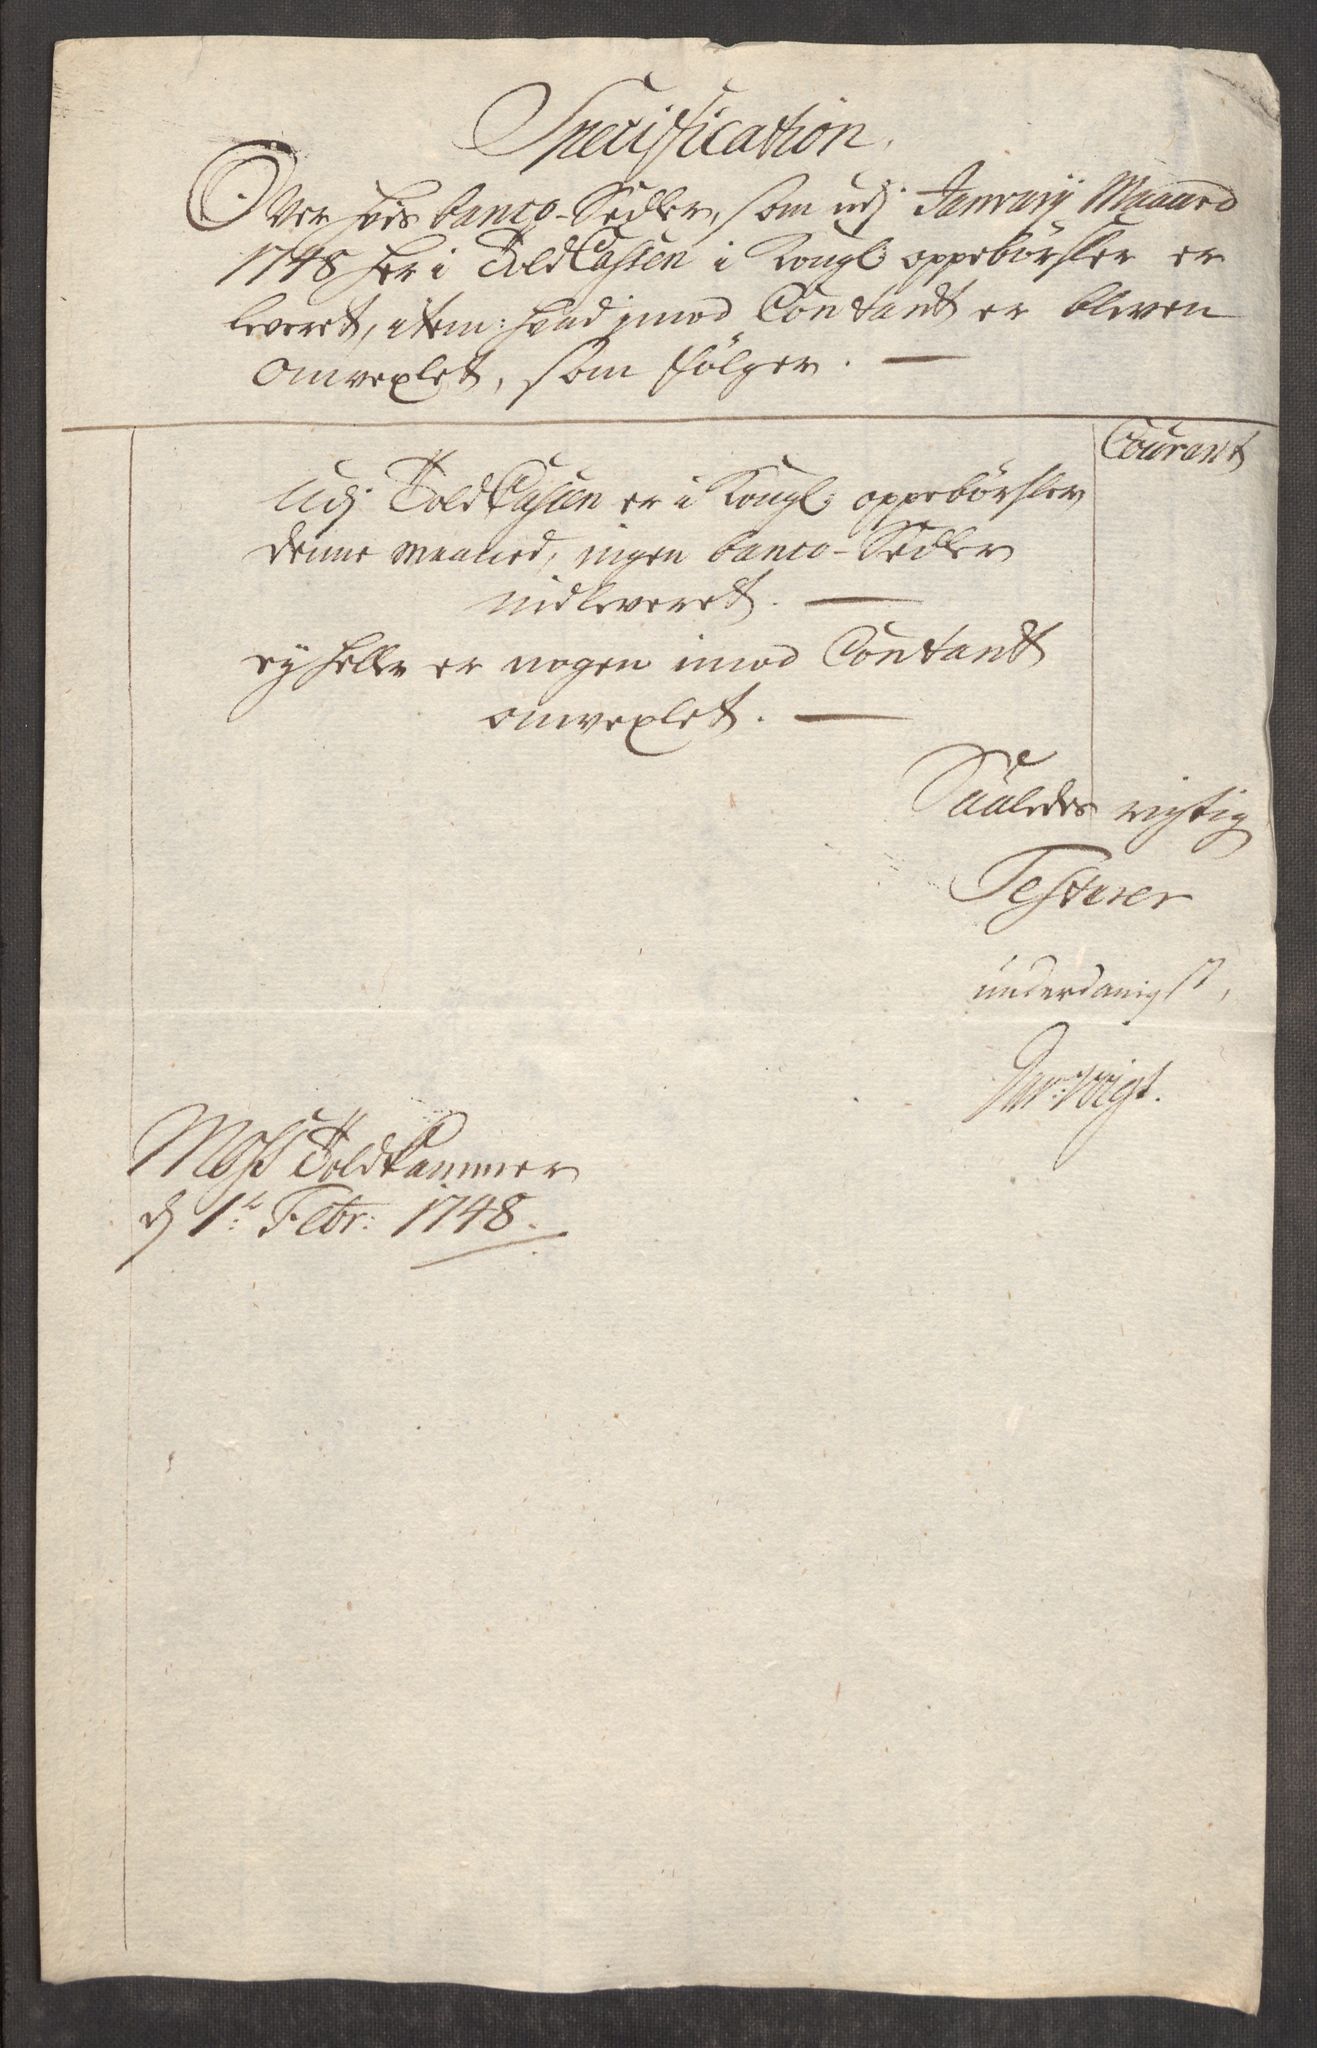 Specification,
Over hvis banco-Sedler, som udj Januarij Maaned
1748 her i ToldCassen i Kongl: oppebørsler er
leveret, item: hvad imod Contant er bleven
omvexlet, som følger.
Courant
Udj ToldCassen er i Kongl: oppebørsler
denne Maaned, ingen banco-Sedler
indleveret.
ej heller er nogen imod Contant
omvexlet.
Saaledes rigtig
Testerer
underdanigst,
Voigt.
Moss ToldCammer
d 1te Febr: 1748.